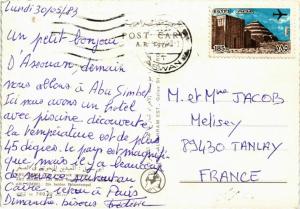 Lundi 30/05/83
Un petit bonjour
D'Assouan, demain
nous allons à Abu Simbel
Ici nous avons un hôtel
avec piscine découverte
la température est de plus
45 degrés. le pays est magnifi-
que, mais il y a beaucoup
de surtout au
Caire, retour à Paris
Dimanche. bisous
POST CARD
A.R. EGYPT
ASWAN
EGYPT
M. et Mme JACOB
Melisey
89430 TANLAY
FRANCE